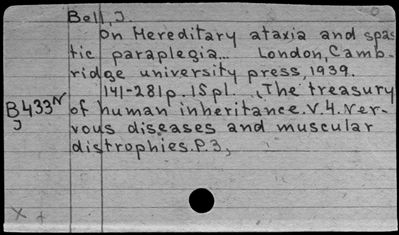 Bell, J.
On Hereditary ataxia and spas-
tic paraplegia... London, Camb-
ridge university press, 1939.
141-281p. 15pl. (The treasury
B433N of human inheritance. V.4. Ner-
J vous diseases and muscular
distrophies. P.3,